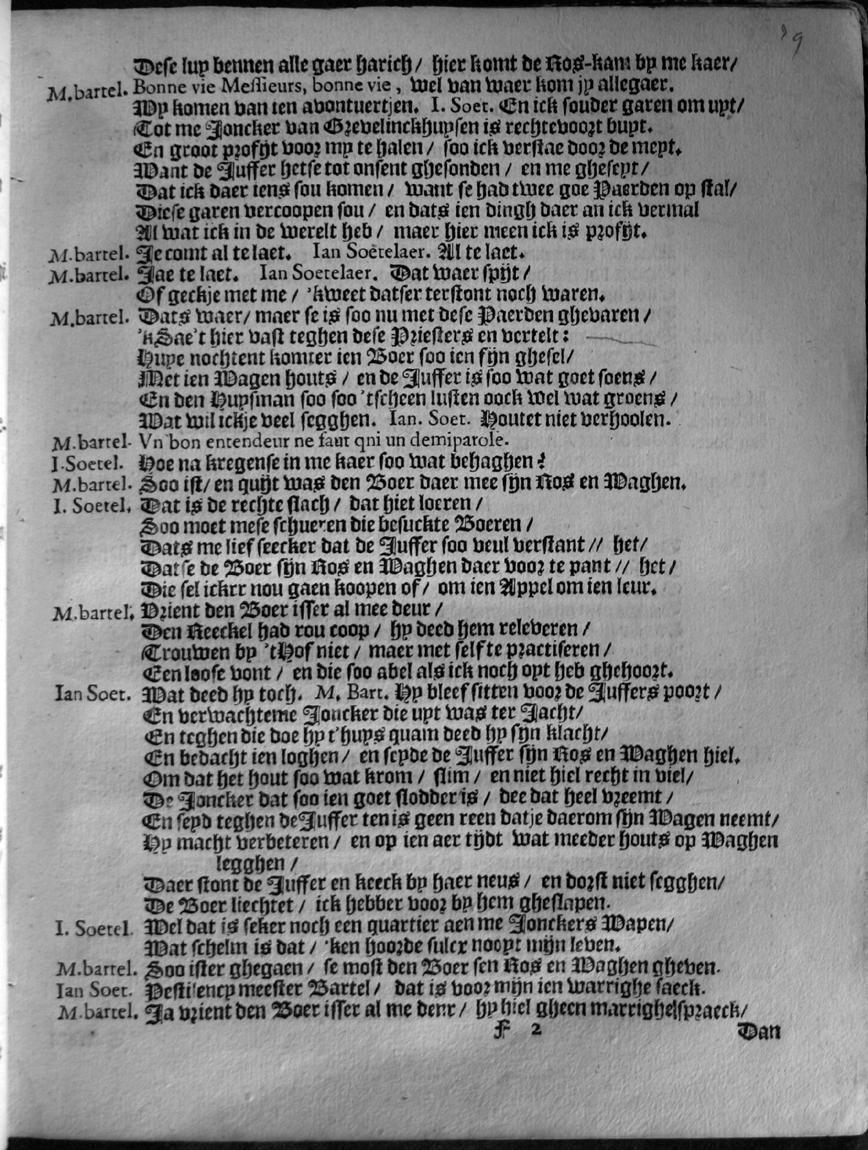 9
Dese luy bennen alle gaer harich / hier komt de Ros-kam by me kaer/
M.bartel. Bonne vie Messieurs, bonne vie, wel van waer kom jy allegaer.
Wy komen van ien avontuertjen. I. Soet. En ick souder garen om uyt/
Tot me Joncker van Grevelinckhuysen is rechtevoort buyt.
En groot profijt voor my te halen / soo ick verstae door de meyt.
Want de Juffer hetse tot onsent ghesonden / en me gheseyt/
Dat ick daer iens sou komen / want se had twee goe Paerden op stal/
Diese garen vercoopen sou / en dats ien dingh daer an ick vermal
Al wat ick in de werelt heb / maer hier meen ick is profijt.
M.bartel. Je comt al te laet. Ian Soetelaer. Al te laet.
M.bartel. Jae te laet. Ian Soetelaer. Dat waer spijt /
Of geckje met me / 'kweet datser terstont noch waren.
M.bartel. Dats waer/ maer se is soo nu met dese Paerden ghevaren /
'kSae't hier vast teghen dese Priesters en vertelt:
Huye nochtent komter ien Boer soo ien fijn ghesel/
Met ien Wagen houts / en de Juffer is soo wat goet soens /
En den Huysman soo soo 'tscheen lusten oock wel wat groens /
Wat wil ickje veel segghen. Ian. Soet. Houtet niet verhoolen.
M.bartel. Vn bon entendeur ne faut qni un demiparole.
I.Soetel. Hoe na kregense in me kaer soo wat behaghen?
M.bartel. Soo ist/ en quijt was den Boer daer mee sijn Ros en Waghen.
I. Soetel. Dat is de rechte slach / dat hiet loeren /
Soo moet mese schueren die besuckte Boeren /
Dats me lief seecker dat de Juffer soo veul verstant // het/
Datse de Boer sijn Ros en Waghen daer voor te pant // het /
Die sel ickrr nou gaen koopen of / om ien Appel om ien leur.
M.bartel. Vrient den Boer isser al mee deur /
Den Reeckel had rou coop / hy deed hem releveren /
Trouwen by 'tHof niet / maer met self te practiseren /
Een loose vont / en die soo abel als ick noch oyt heb ghehoort.
Ian Soet. Wat deed hy toch. M. Bart. Hy bleef sitten voor de Juffers poort /
En verwachteme Joncker die uyt was ter Jacht/
En teghen die doe hy t'huys quam deed hy sijn klacht/
En bedacht ien loghen / en seyde de Juffer sijn Ros en Waghen hiel.
Om dat het hout soo wat krom / slim / en niet hiel recht in viel/
De Joncker dat soo ien goet slodder is / dee dat heel vreemt /
En seyd teghen deJuffer ten is geen reen datje daerom sijn Wagen neemt/
Hy macht verbeteren / en op ien aer tijdt wat meeder houts op Waghen
legghen /
Daer stont de Juffer en keeck by haer neus / en dorst niet segghen/
De Boer liechtet / ick hebber voor by hem gheslapen.
I. Soetel. Wel dat is seker noch een quartier aen me Jonckers Wapen/
Wat schelm is dat / 'ken hoorde sulcx nooyt mijn leven.
M.bartel. Soo ister ghegaen / se most den Boer sen Ros en Waghen gheven.
Ian Soet. Pestilency meester Bartel / dat is voor mijn ien warrighe saeck.
M.bartel. Ja vrient den Boer isser al me deur / hy hiel gheen marrighe spraeck/
F 2 Dan